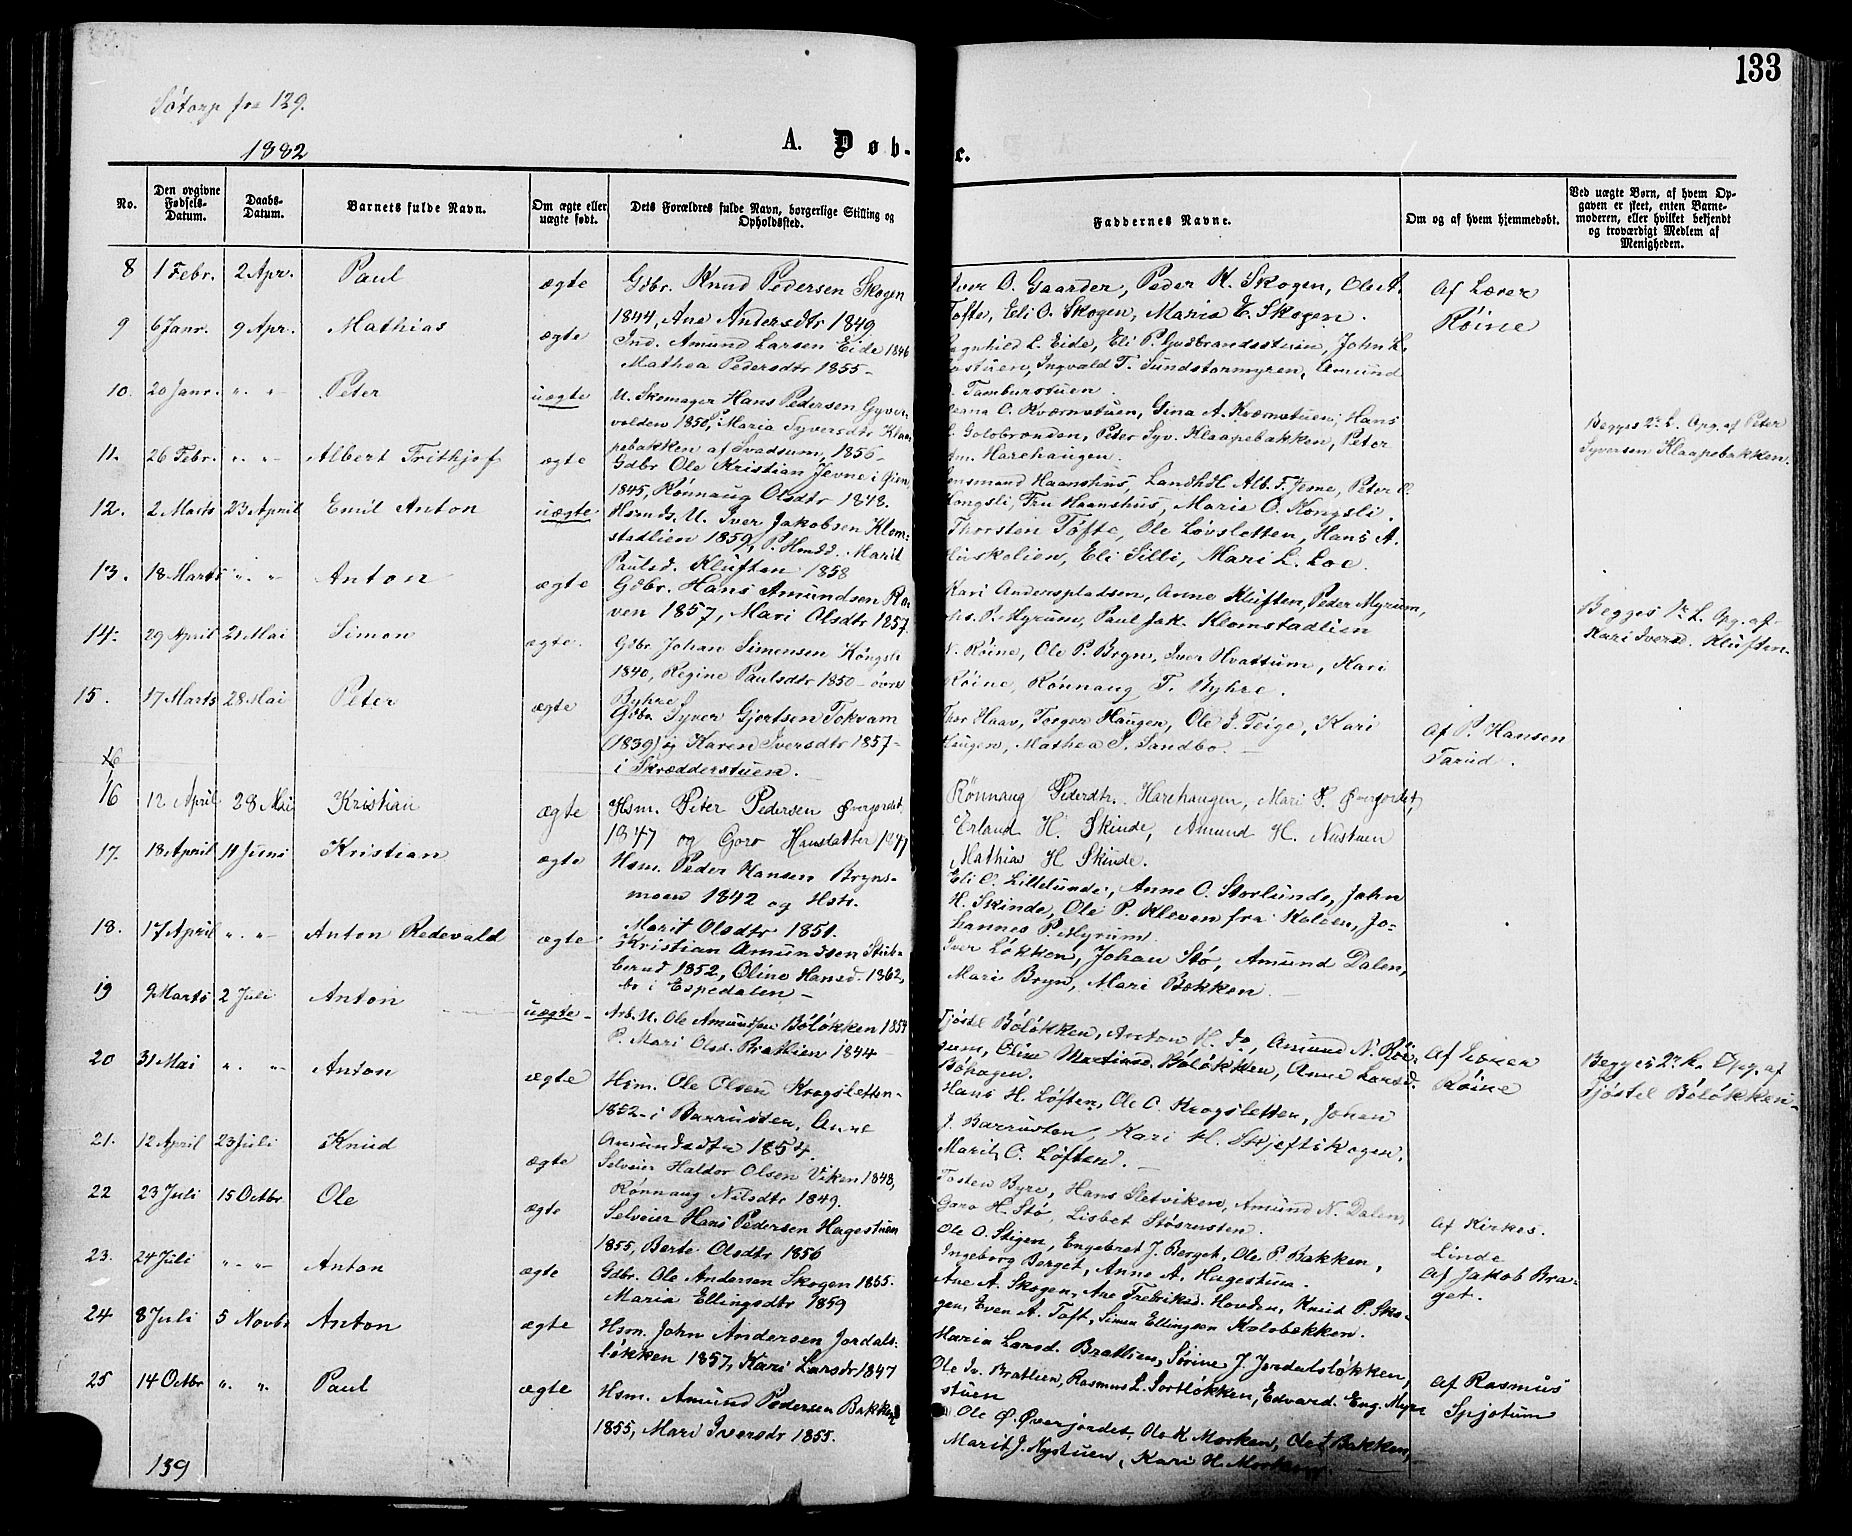 133
Søtorp fra 129.
1882
A. Døb-
e.
No.
Den opgivne Fødsels-Datum.
Daabs-Datum.
Barnets fulde Navn.
Om ægte eller uægte født.
Dets Forældres fulde Navn, borgerlige Stilling og Opholdssted.
Faddernes Navne.
Om og af hvem hjemmedøbt.
Ved uægte Børn, af hvem Op-
gaven er skeet, enten Barne-
moderen, eller hvilket bekjendt
og troværdigt Medlem af
Menigheden.
8 1 Febr. 2 Apr. Paul ægte
Gdbr. Knud Pedersen Skogen
1844, Ane Andersdtr 1849
Iver O. Gaarder, Peder K. Skogen, Ole A.
Tofte, Eli O. Skogen, Maria E. Skogen.
Af Lærer
Røine
9 6 Janr. 9 Apr. Mathias ægte
Ind. Amund Larsen Eide 1846
Mathea Pedersdtr 1855-
Ragnhild L. Eide, Eli P. Gudbrandsstuen, John L.
stuen, Ingvald T. Sundstormyren, Amund
Tamburstuen.
10. 20 Janr. " " Peter uægte
U. Skomager Hans Pedersen Gyver-
volden 1850, Maria Syversdtr Klaa-
pebakken af Svadsum, 1856-
O. Kværnstuen, Gina A. Kværnstuen, Hans
Golobrenden, Peter Syv. Klaapebakken, Peter
Harehaugen.
Begges 2den L. Opg. af Peter
Syversen Klaapebakken.
11. 26 Febr. " " Albert Frithjof ægte
Gdbr Ole Kristian Jevne i Øien
1845, Rønnaug Olsdtr 1848.
Lensmand Haanshus, Landhdl. Alb. T. Jevne, Peter O.
Kongsli, Fru Haanshus, Maria O. Kongsli.
12. 2 Marts 23 April Emil Anton uægte
Hsmds. U. Iver Jakobsen Klom-
stadlien 1859, P. Hmdd. Marit
Paulsd. Kluften 1858
Thorsten Tofte, Ole Løvsletten, Hans A.
Huskelien, Eli Silli, Mari L. Loe.
13. 18 Marts " " Anton ægte
Gdbr. Hans Amundsen Ra-
ven 1857, Mari Olsdtr 1857.
Kari Anderspladsen, Anne Kluften, Peder Myrum,
P. Myrum, Paul Jak. Klomstadlien
Begges 1ste L. Opg. af
Kari Iversd. Kluften.
14. 29 April 21 Mai Simon ægte.
Gdbr Johan Simensen Kongsli
1840, Regine Paulsdtr 1850- øvre
Byhre
N. Røine, Ole P. Bryn, Iver Hvattum, Kari
Røine, Rønnaug T. Byhre.
15. 17 Marts 28 Mai Peter ægte
Gdbr Syver Gjertsen Tokvam
(1839) og Karen Iversdtr 1857-
i Skrædderstuen.
Thor Haav, Torger Haugen, Ole I. Teige, Kari
Haugen, Mathea S. Sandbo.
Af P. Hansen
Tarud.
16
16 12 April 28 Mai Kristian ægte
Hsm. Peter Pedersen Øverjordet
1847 og Goro Hansdatter 1847
Rønnaug Pedersdtr. Harehaugen, Mari P. Øverjordet,
Erland H. Skinde, Amund H. Nustuen
Mathias H Skinde.
17. 18 April 11 Juni Kristian ægte
Hsm. Peder Hansen Bryns-
moen 1842 og Hstr.
Marit Olsdtr 1851.
Eli O. Lillelunde, Anne O. Storlunde, John
H. Skinde, Ole P. Kleven fra Kolven, Jo-
hannes P. Myrum.
18. 17 April " " Anton Redevald ægte
Kristian Amundsen Stub-
berud 1852, Oline Hansd. 1862,
bo i Espedalen-
Iver Løkken, Johan Stø, Amund Dalen,
Mari Bryn, Mari Bakken.
19 9 Marts 2 Juli Anton uægte
Arb. U. Ole Amundsen Böløkken 1854
P. Mari Olsd. Brathien 1844-
Tjøstel Böløkken, Anton H. do, Amund N. Røi-
sum, Oline Martinsd. Böløkken, Anne Larsd.
Bøhagen.
Af Lærer
Røine
Begges 2den L. Opg. af
Tjøstel Böløkken
20 31 Mai " " Anton ægte
Hsm. Ole Olsen Krogsletten-
1852- i Barrusten, Anne
Amundsdtr 1854.
Hans H. Løften, Ole O. Krogsletten, Johan
J. Barrusten, Kari H. Skjeftskogen,
Marit O. Løften.
21. 12 April 23 Juli Knud ægte
Selveier Haldor Olsen Viken 1848,
Rønnaug Nilsdtr 1849.
Tosten Byre, Hans Sletviken, Amund N. Dalen,
Goro H. Stø, Lisbet Støsrusten.
22 23 Juli 15 Octbr Ole ægte
Selveier Hans Pedersen Hagestuen
1855, Berte Olsdtr 1856
Ole O. Stigen, Engebret J. Berget, Ole P. Bakken,
Ingeborg Berget, Anne A. Hagestuen.
Af Kirkes.
Linde
23. 24 Juli " " Anton ægte
Gdbr. Ole Andersen Skogen 1855.
Maria Ellingsdtr 1859
Ane A. Skogen, Ane Fredriksd. Hovden, Knud P. Sko-
gen, Even A. Toft, Simen Ellingsen Kolobekken.
Af Jakob Bra-
get.
24 8 Juli 5 Novbr Anton ægte
Hsm. John Andersen Jordals-
løkken 1857, Kari Larsdtr 1847
Maria Larsd. Brathien, Sørine J. Jordalsløkken,
Ole Iv. Brathien, Rasmus L. Sortløkken, Edvard. Eng. Myre
stuen
25 14 Octbr " " Paul ægte
Hsm. Amund Pedersen Bakken
1855, Mari Iversdr 1855.
Ole Ø. Øverjordet, Ole K. Morken, Ole Bakken,
Marit J. Nystuen, Kari H. Morken.
Af Rasmus
Spjotum
139